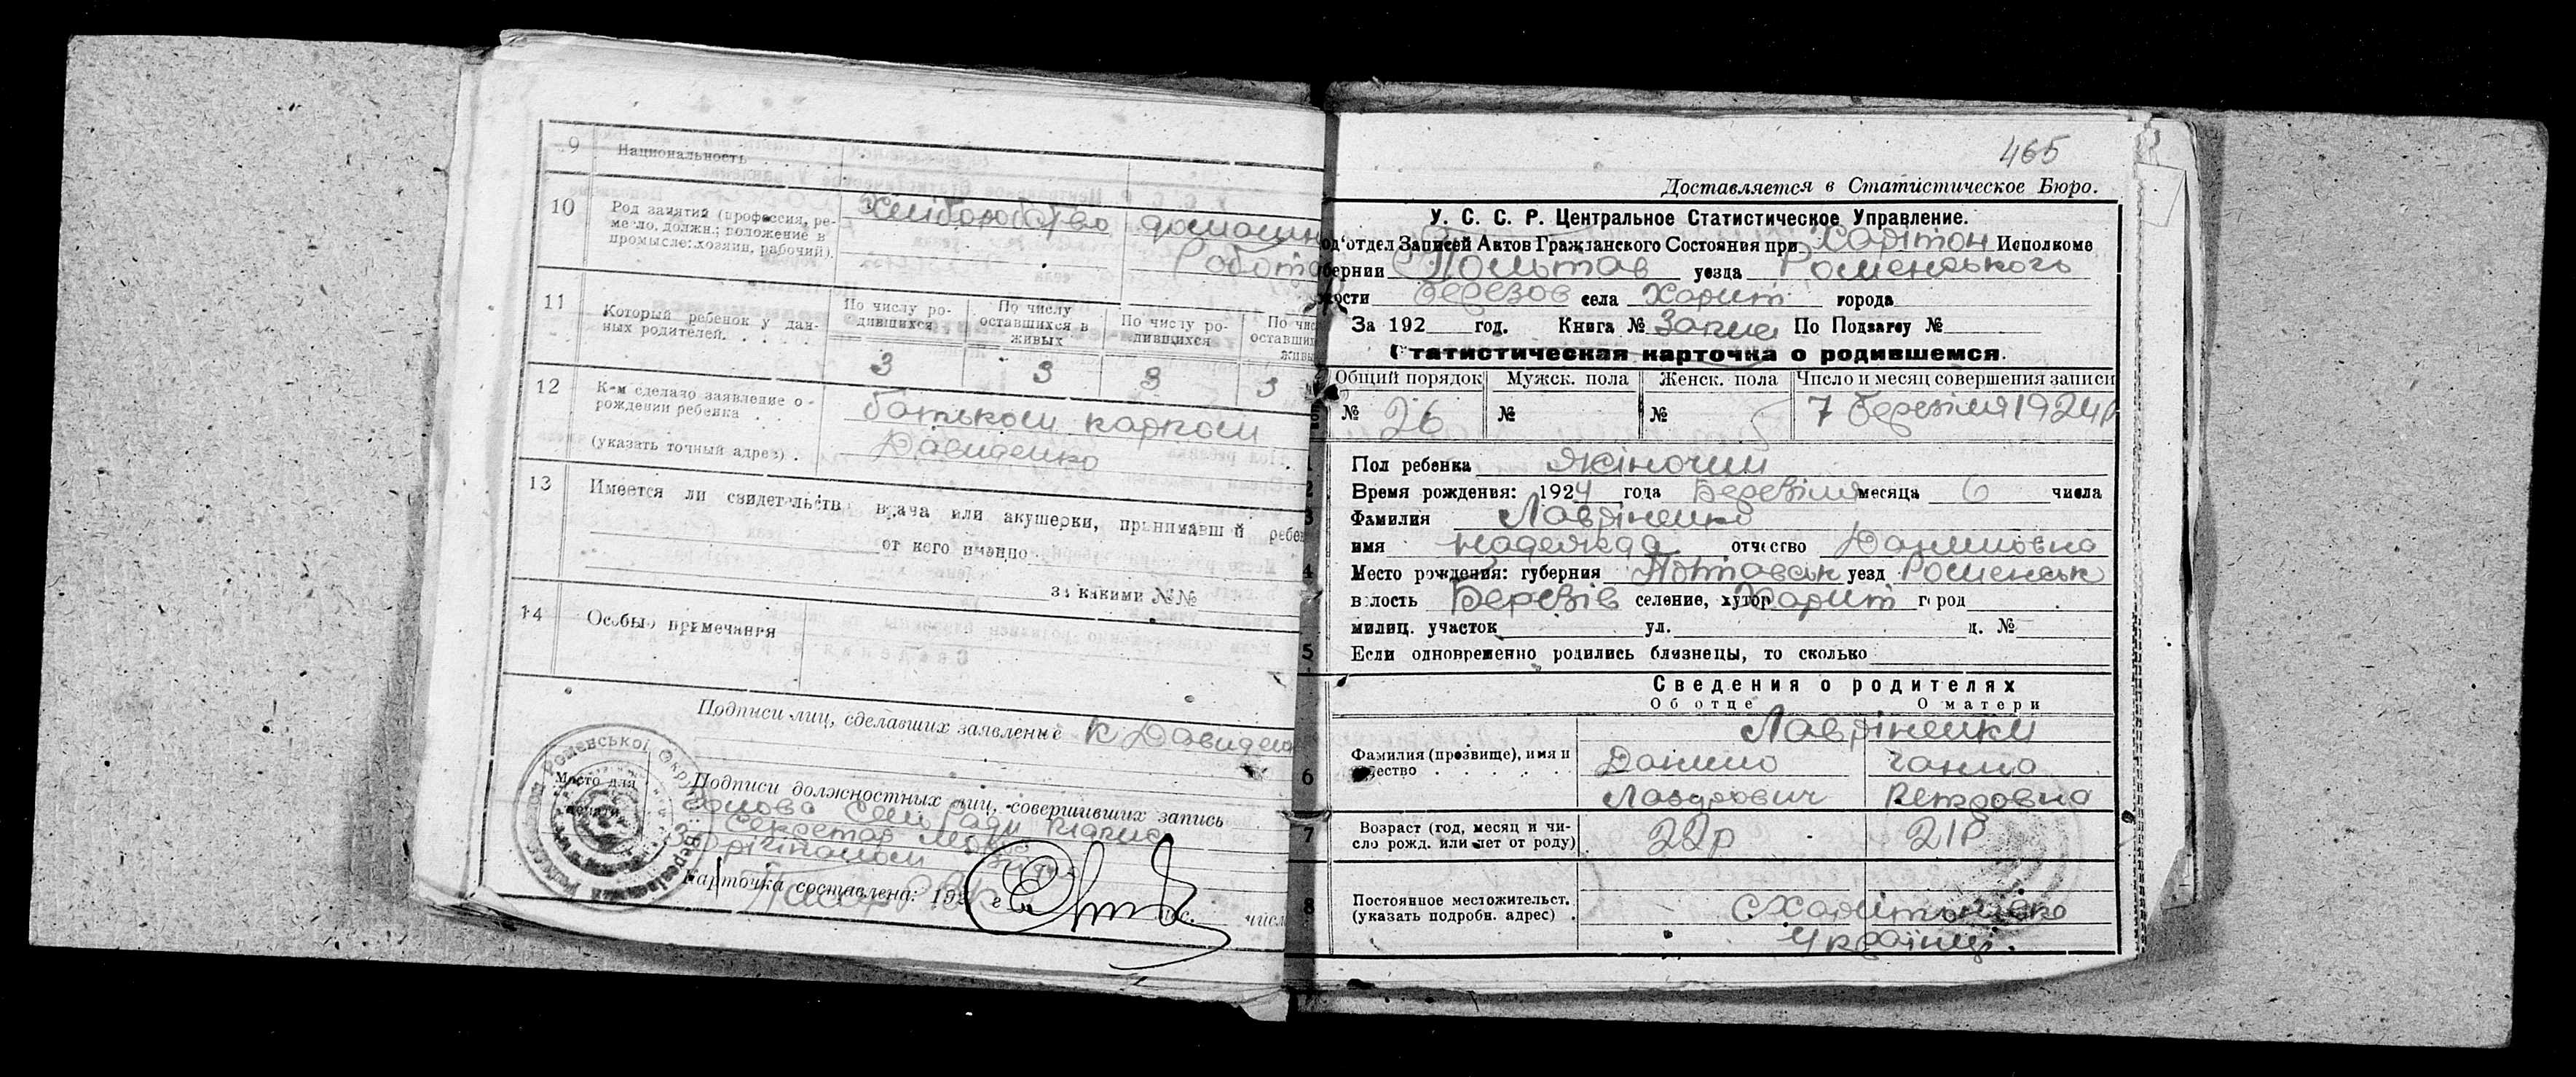 9 Национальность
10 Род занятий (профессия, ре-
месло, должн.; положение в
промысле: хозяин, рабочий).
Хліборобство
домашн
Робота
11 Который ребенок у дан-
ных родителей.
По числу ро-
дившихся
По числу
оставшихся в
живых
По числу ро-
дившихся
По чис
оставших
живы
3 3 3 3
12 Кем сделано заявление о
рождении ребенка
(указать точный адрес).
батьком карпом
Давиденко
13 Имеется ли свидетельство врача или акушерки, принимавшей ребен
от кого именно
за какими №№
14 Особые примечания
Подписи лиц, сделавших заявление К Давиден
Подписи должностных лиц, совершивших запись
Голова Сіль Ради
Секретар
З орігіналом
Место для
печати
Роменської Округи
Карточка составлена: 192 г. мес. числ
465
Доставляется в Статистическое Бюро.
У. С. С. Р. Центральное Статистическое Управление.
од'отдел Записей Актов Гражданского Состояния при Харітон Исполкоме
бернии Польтав уезда Роменського
ости Березов села Харит города
За 192 год. Книга № Запис По Подзагсу №
Статистическая карточка о родившемся.
Общий порядок Мужск. пола Женск. пола Число и месяц совершения записи
№ 26 № № 7 березіля 1924р
1 Пол ребенка Жіночий
2 Время рождения: 1924 года Березіля месяца 6 числа
3 Фамилия Лавріненко
имя Надежда отчество Даниловна
4 Место рождения: губерния Полтавськ уезд Роменськ
волость Березів селение, хутор Харит город
милиц. участок ул. д. №
5 Если одновременно родились близнецы, то сколько
Сведения о родителях
Об отце О матери
Лавріненки
6 Фамилия (прозвище), имя и
отчество
Данило Ганна
Лазарович Петровна
7 Возраст (год, месяц и чи-
сло рожд. или лет от роду)
22р 21р
8 Постоянное местожительст.
(указать подробн. адрес)
с Харитонівка
Українці.